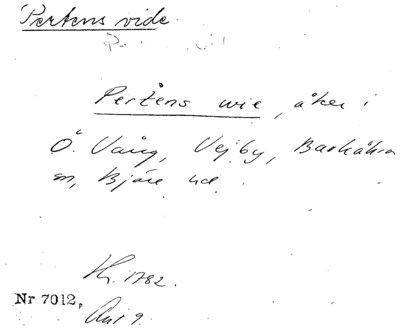 Pertens vide.
Pertens wie, åker i
Ö. Vång, Vejby, Barkåkra
sn, Bjäre hd.
H. 1782.
Nr 7012,
Akt 9.